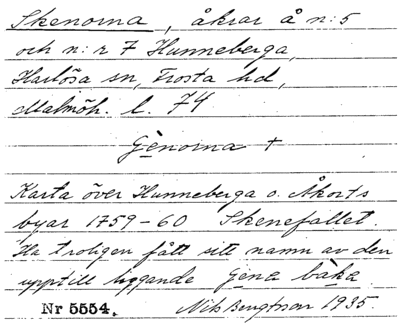 Skenorna, åkrar å n:5
och n:r 7 Hunneberga,
Harlösa sn, Frosta hd,
Malmöh. l. 74
Gènorna +
Karta över Hunneberga o. Åkorts
byar 1759-60 Skenefallet.
Ha troligen fått sitt namn av den
upptill liggande Gena båka.
Nr 5554. Nils Bengtsson 1935.